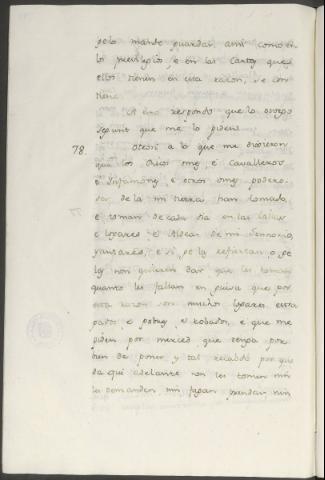 gelo mande guardar, assi como en
los previlegios, e en las Cartas que
ellos tienen en esta razon, se con
tiene.
A esto respondo que lo otorgo
segunt que me lo piden.
78. Otrosi a lo que me dixieron
que los Ricos omes e Cavalleros
e Infanzones e otros omes podero-
sos de la mi tierra han tomado,
e toman de cada dia en las
e logares e Aldeas de mi Sennorio,
yantares, e si ge las refiertan, o ge
las non quieren dar que les toman
quanto les fallan en guisa que por
esta razon son muchos logares esta
gados e pobres e robados, e que me
piden por merced que tenga por
bien de poner y tal recabdo por que
da qui adelante non les tomen nin
la demanden nin fagan prendar nin